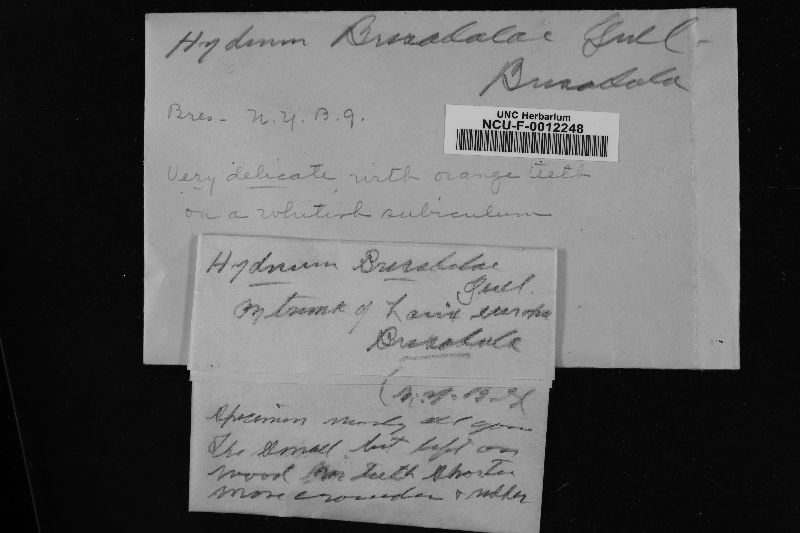 Hydnum Bresadolae Quel-
Bresadola
Bres- N.Y.B.G.
UNC Herbarium
NCU-F-0012248
Very delicate, with orange teeth
on a whitish subiculum
Hydnum Bresadolae
Quel.
on trunk of Larix
Bresadola
(N.Y.B.G)
Specimen nearly all gone
The small bit left on
wood has teeth shorter
more crowded &